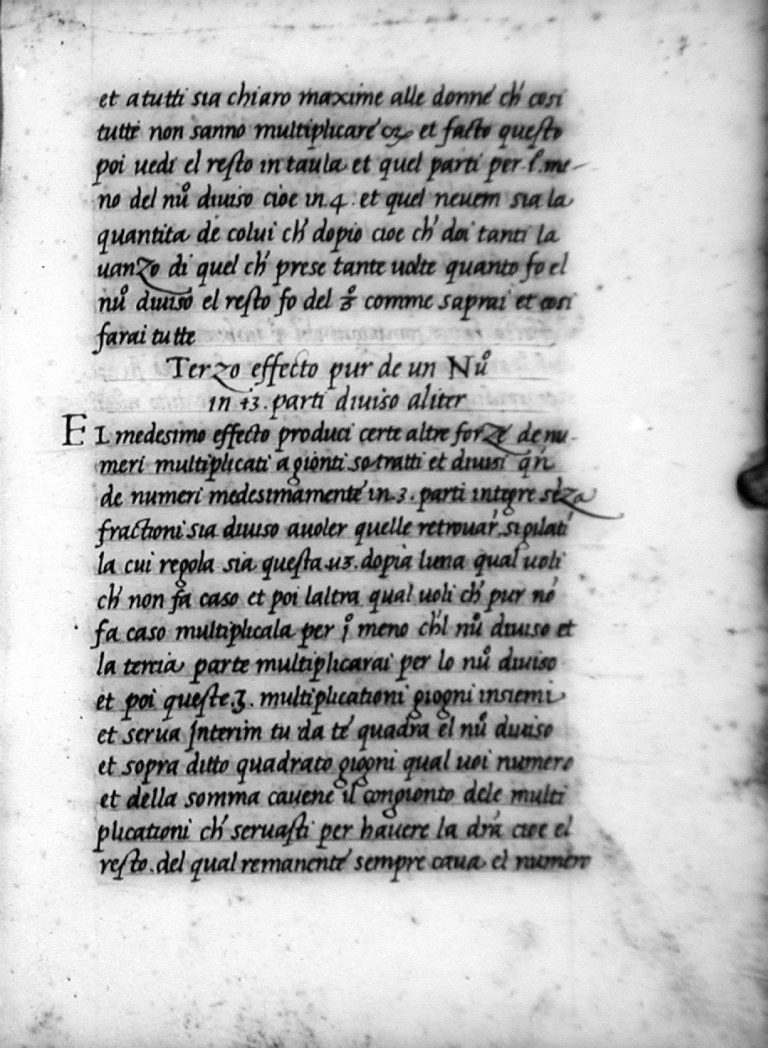 et a tutti sia chiaro maxime alle donne ch' cosi
tutte non sanno multiplicare et facto questo
poi uedi el resto in taula et quel parti per i.me-
no del nu° diuiso cioe in.4. et quel neuem sia la
quantita de colui ch' dopio cioe ch' doi tanti la
uanzo di quel ch' prese tante uolte quanto fo el
nu° diuiso el resto fo del 3° comme saprai et cosi
farai tutte
Terzo effecto pur de un Nu°
in 3. parti diuiso aliter
EL medesimo effecto produci certe altre forze de nu-
meri multiplicati agionti sotratti et diuisi qn̄
de numeri medesimamente in.3. parti integre sēza
fractioni sia diuiso auoler quelle retrouar' si pilati
la cui regola sia questa.uz. dopia luna qual uoli
ch' non fa caso et poi laltra qual uoli ch' pur nō
fa caso multiplicala per i° meno ch'l nu° diuiso et
la tercia parte multiplicarai per lo nu° diuiso
et poi queste.3. multiplicationi giogni insiemi
et serua Interim tu da te quadra el nu° diuiso
et sopra ditto quadrato giogni qual uoi numero
et della somma cauene il congionto dele multi
plicationi ch' seruasti per hauere la dr̄a cioe el
resto.del qual remanente sempre caua el numero